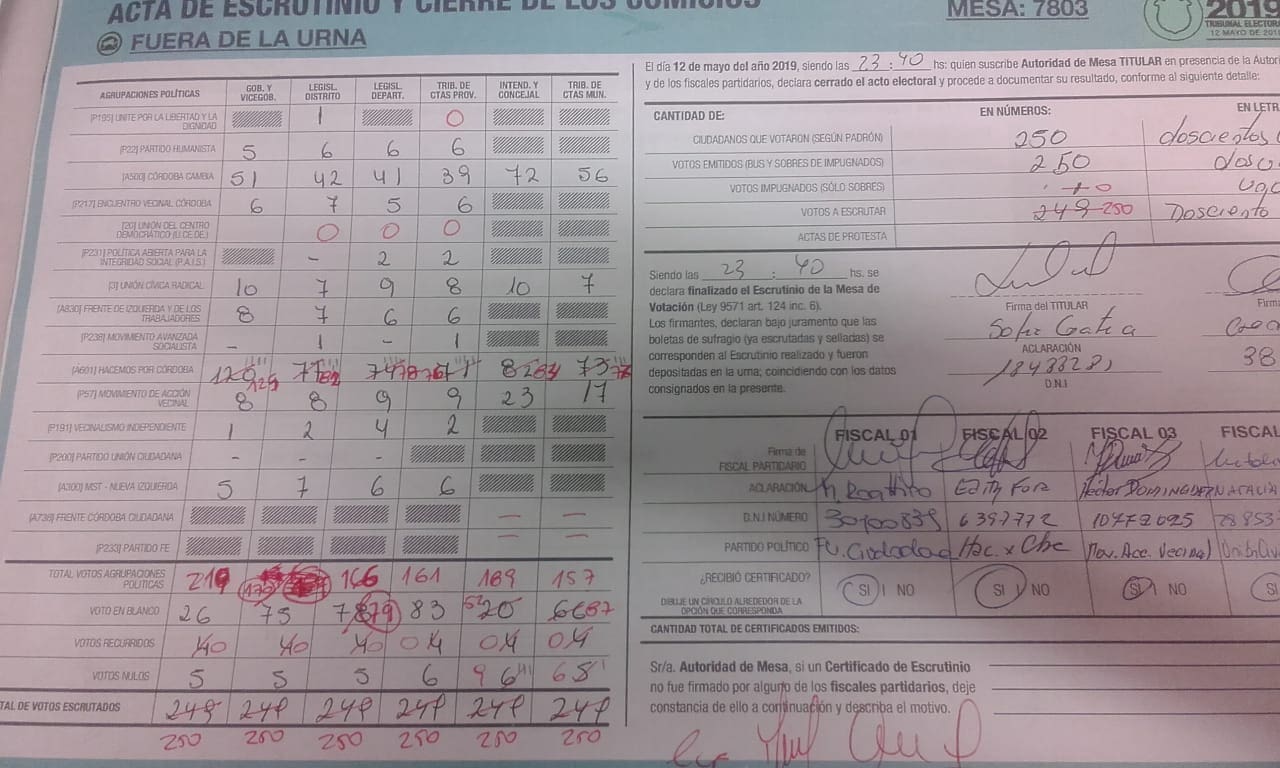 ACTA DE ESCRUTINIO Y CIERRE DE LOS COMICIOS
MESA: 7803
2019
TRIBUNAL ELECTORA
12 MAYO DE 201
FUERA DE LA URNA
AGRUPACIONES POLÍTICAS GOB. Y VICEGOB. LEGISL. DISTRITO LEGISL. DEPART. TRIB. DE CTAS PROV. INTEND. Y CONCEJAL TRIB. DE CTAS MUN.
[P195] UNITE POR LA LIBERTAD Y LA DIGNIDAD 1 0
[P22] PARTIDO HUMANISTA 5 6 6 6
[A500] CÓRDOBA CAMBIA 51 42 41 39 72 56
[P217] ENCUENTRO VECINAL CÓRDOBA 6 7 5 6
[20] UNIÓN DEL CENTRO DEMOCRÁTICO (U.CE.DE.) 0 0 0
[P231] POLÍTICA ABIERTA PARA LA INTEGRIDAD SOCIAL (P.A.I.S.) - 2 2
[3] UNIÓN CÍVICA RADICAL 10 7 9 8 10 7
[A830] FRENTE DE IZQUIERDA Y DE LOS TRABAJADORES 8 7 6 6
[P238] MOVIMIENTO AVANZADA SOCIALISTA - 1 - 1
[A601] HACEMOS POR CÓRDOBA
[P57] MOVIMIENTO DE ACCIÓN VECINAL 8 8 9 9 23 17
[P191] VECINALISMO INDEPENDIENTE 1 2 4 2
[P200] PARTIDO UNIÓN CIUDADANA - - -
[A300] MST - NUEVA IZQUIERDA 5 7 6 6
[A738] FRENTE CÓRDOBA CIUDADANA — —
[P233] PARTIDO FE — —
TOTAL VOTOS AGRUPACIONES POLÍTICAS 219 166 161 189 157
VOTO EN BLANCO 26 75 79 83
VOTOS RECURRIDOS
VOTOS NULOS 5 5 5 6
TAL DE VOTOS ESCRUTADOS 249 249 249 249 249 249
250 250 250 250 250 250
El día 12 de mayo del año 2019, siendo las 23:40 hs: quien suscribe Autoridad de Mesa TITULAR en presencia de la Autori
y de los fiscales partidarios, declara cerrado el acto electoral y procede a documentar su resultado, conforme al siguiente detalle:
CANTIDAD DE: EN NÚMEROS: EN LETR
CIUDADANOS QUE VOTARON (SEGÚN PADRÓN) 250 doscientos
VOTOS EMITIDOS (BUS Y SOBRES DE IMPUGNADOS) 250
VOTOS IMPUGNADOS (SÓLO SOBRES) 0
VOTOS A ESCRUTAR 249 250 Doscientos
ACTAS DE PROTESTA
Siendo las 23 : 40 hs. se
declara finalizado el Escrutinio de la Mesa de
Votación (Ley 9571 art. 124 inc. 6).
Los firmantes, declaran bajo juramento que las
boletas de sufragio (ya escrutadas y selladas) se
corresponden al Escrutinio realizado y fueron
depositadas en la urna; coincidiendo con los datos
consignados en la presente.
Firma del TITULAR
ACLARACIÓN
D.N.I
Firm
38
FISCAL 01 FISCAL 02 FISCAL 03 FISCAL
Firma de FISCAL PARTIDARIO
ACLARACIÓN
D.N.I NÚMERO 30100839 6397772 10772025 28853
PARTIDO POLÍTICO Hac. x Cba Mov. Acc. Vecinal
¿RECIBIÓ CERTIFICADO? SI | NO SI | NO SI | NO SI
DIBUJE UN CÍRCULO ALREDEDOR DE LA OPCIÓN QUE CORRESPONDA
CANTIDAD TOTAL DE CERTIFICADOS EMITIDOS:
Sr/a. Autoridad de Mesa, si un Certificado de Escrutinio
no fue firmado por alguno de los fiscales partidarios, deje
constancia de ello a continuación y describa el motivo.